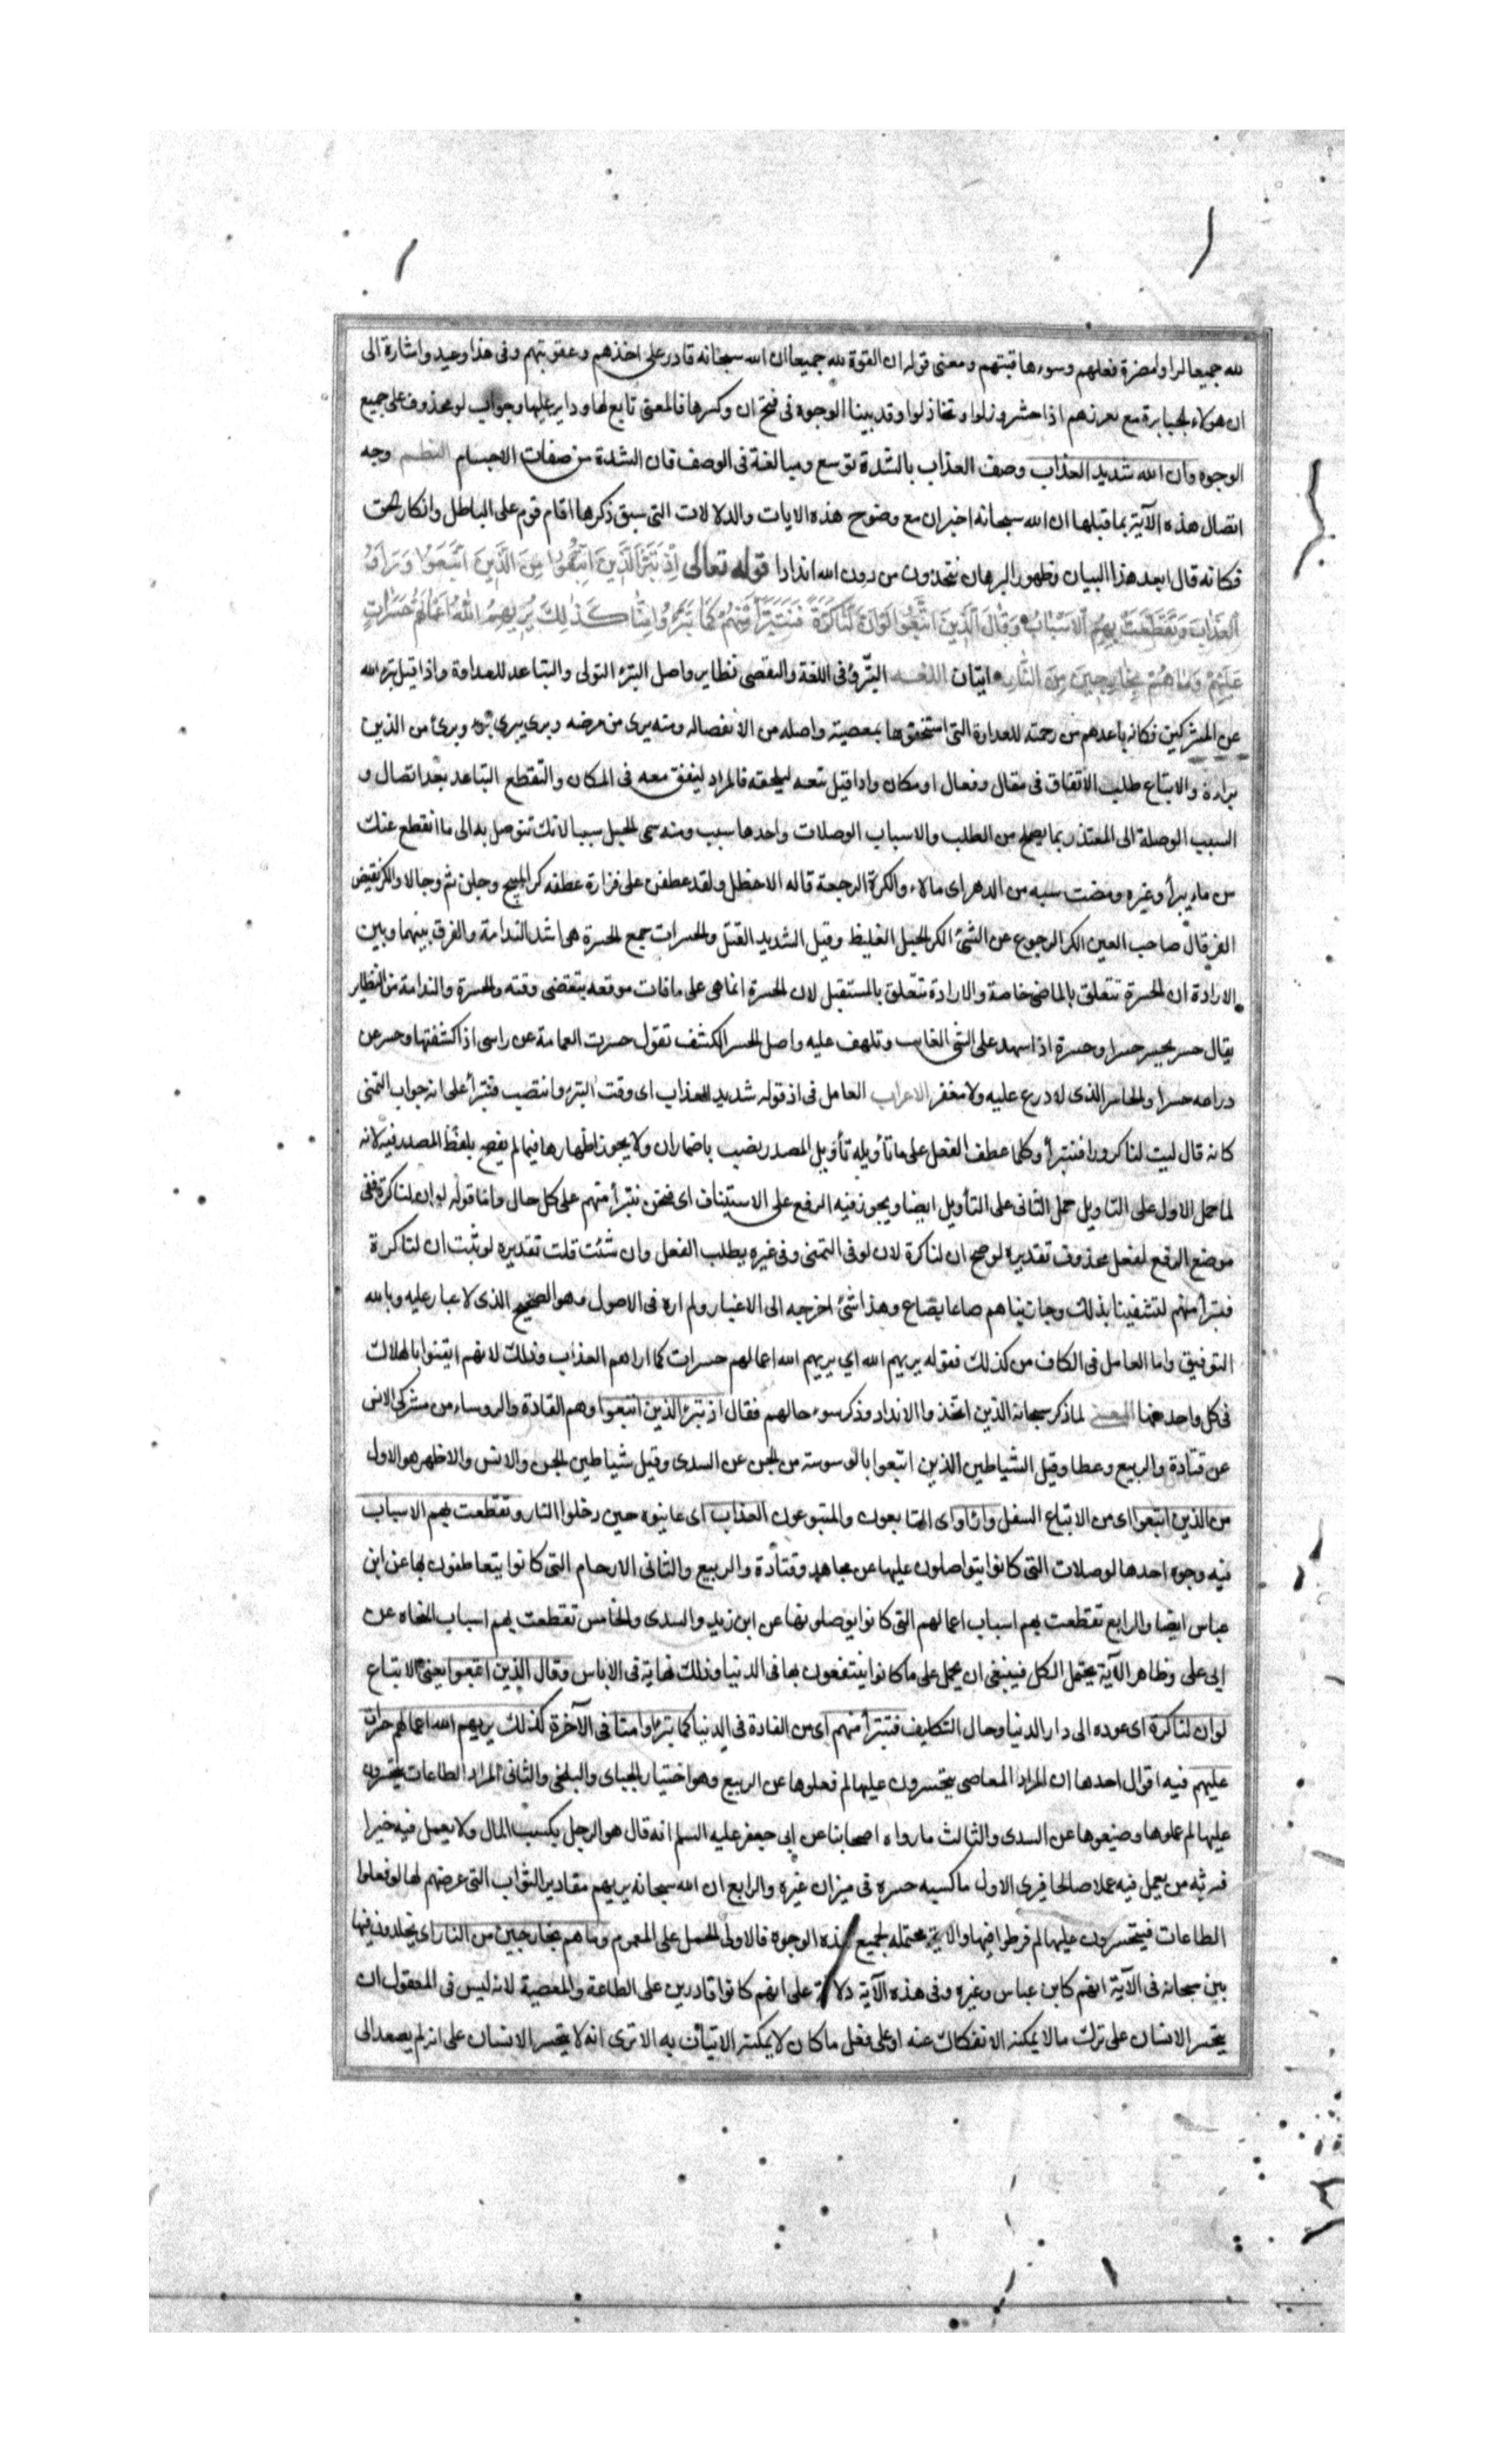 لله جميعا لراوا مضرة فعلهم وسوء عاقبتهم ومعنى قوله ان القوة لله جميعا ان الله سبحانه قادر على اخذهم وعقوبتهم وفى هذا وعيد واشارة الى
ان هولاء الجبابرة مع تعززهم اذا حشروا ذلوا وتخاذلوا وقد بينا الوجوه فى فتح ان وكسرها فالمعنى تابع لها وداير عليها وجواب لو محذوف على جميع
الوجوه وان الله شديد العذاب وصف العذاب بالشدة توسع ومبالغة فى الوصف فان الشدة من صفات الاجسام النظم وجه
اتصال هذه الآية بما قبلها ان الله سبحانه اخبر ان مع وضوح هذه الايات والدلالات التى سبق ذكرها اقام قوم على الباطل وانكار الحق
فكانه قال ابعد هذا البيان وظهور البرهان يتخذون من دون الله اندادا قوله تعالى اِذْ تَبَرَّأَ الَّذِينَ اتُّبِعُوا مِنَ الَّذِينَ اتَّبَعُوا وَرَاَوُ
الْعَذَابَ وَتَقَطَّعَتْ بِهِمُ الْاَسْبَابُ وَقَالَ الَّذِينَ اتَّبَعُوا لَوْ اَنَّ لَنَا كَرَّةً فَنَتَبَرَّأَ مِنْهُمْ كَمَا تَبَرَّؤُا مِنَّا كَذٰلِكَ يُرِيهِمُ اللّٰهُ اَعْمَالَهُمْ حَسَرَاتٍ
عَلَيْهِمْ وَمَا هُمْ بِخَارِجِينَ مِنَ النَّارِ ايتان اللغة التبرؤ فى اللغة والتفصى نظاير واصل التبرؤ التولى والتباعد للعداوة واذا قيل تبرء الله
عن المشركين فكانه باعدهم من رحمته للعداوة التى استحقوها بمعصيته واصله من الانفصال ومنه برى من مرضه وبرى يبرى برء وبرئ من الدين
براءة والاتباع طلب الاتفاق فى مقال وفعال او مكان واذا قيل تبعه ليلحقه فالمراد ليتفق معه فى المكان والتقطع التباعد بعد اتصال و
السبب الوصلة الى المتعذر بما يصلح من الطلب والاسباب الوصلات واحدها سبب ومنه سمى الحبل سببا لانك تتوصل به الى ما انقطع عنك
من ماء بئر او غيره ومضت سبه من الدهر اى ملاء والكرة الرجعة قاله الاخطل ولقد عطفن على فزارة عطفه كر المنيح وجلن ثم وجالا والكر نقيض
الفر قال صاحب العين الكر الرجوع عن الشئ الكر الحبل الغليظ وقيل الشديد الفتل والحسرات جمع الحسرة هى اشد الندامة والفرق بينهما وبين
الارادة ان الحسرة تتعلق بالماضى خاصة والارادة تتعلق بالمستقبل لان الحسرة انما هى على ما فات موقعه بتقضى وقته والحسرة والندامة من النظاير
يقال حسر يحسر حسرا وحسرة اذا على الشى الغايب وتلهف عليه واصل الحسر الكشف تقول حسرت العمامة عن راسى اذا كشفتها وحسر عن
دراعه حسرا والحاسر الذى لا درع عليه ولا مغفر الاعراب العامل فى اذ قوله شديد العذاب اى وقت التبرؤ وانتصب فنتبرأ على انه جواب التمنى
كانه قال ليت لنا كرورا فنتبرأ وكلما عطف الفعل على ما تأويله تأويل المصدر نصب باضمار ان ولا يجوز اظهارها فيما لم يفصح بلفظ المصدر فيه لانه
لما حمل الاول على التاويل حمل الثانى على التأويل ايضا ويجوز فيه الرفع على الاستيناف اى فنحن نتبرأ منهم على كل حال واما قوله لو ان لنا كرة ففى
موضع الرفع لفعل محذوف تقديره لو صح ان لنا كرة لان لو فى التمنى وفى غيره يطلب الفعل وان شئت قلت تقديره لو ثبت ان لنا كرة
فنتبرأ منهم لتشفينا بذلك وجازيناهم صاعا بصاع وهذا شئ اخرجه الى الاعتبار ولم اره فى الاصول وهو الصحيح الذى لا غبار عليه وبالله
التوفيق واما العامل فى الكاف من كذلك فقوله يريهم الله اي يريهم الله اعمالهم حسرات كما اراهم العذاب وذلك لانهم ايقنوا بالهلاك
فى كل واحد منهما المعنى لما ذكر سبحانه الذين اتخذوا الانداد وذكر سوء حالهم فقال اذ تبرئ الذين اتبعوا وهم القادة والروساء من مشركى الانس
عن قتادة والربيع وعطا وقيل الشياطين الذين اتبعوا بالوسوسة من الجن عن السدى وقيل شياطين الجن والانس والاظهر هو الاول
من الذين اتبعوا اى من الاتباع السفل وراوا اى التابعون والمتبوعون العذاب اى عاينوه حين دخلوا النار وتقطعت بهم الاسباب
فيه وجوه احدها الوصلات التى كانوا يتواصلون عليها عن مجاهد وقتادة والربيع والثانى الارحام التى كانوا يتعاطفون بها عن ابن
عباس ايضا والرابع تقطعت بهم اسباب اعمالهم التى كانوا يوصلونها عن ابن زيد والسدى والخامس تقطعت بهم اسباب النجاه عن
ابى على وظاهر الآية يحتمل الكل فينبغى ان يحمل على ما كانوا ينتفعون بها فى الدنيا وذلك نهاية فى الاياس وقال الذين اتبعوا يعنى الاتباع
لو ان لنا كرة اى عوده الى دار الدنيا وحال التكليف فنتبرأ منهم اى من القادة فى الدنيا كما تبرؤا منا فى الآخرة كذلك يريهم الله اعمالهم حسرات
عليهم فيه اقوال احدها ان المراد المعاصى يتحسرون عليها لم فعلوها عن الربيع وهو اختيار الجبائى والبلخى والثانى المراد الطاعات يتحسرون
عليها لم لم عملوها وضيعوها عن السدى والثالث ما رواه اصحابنا عن ابى جعفر عليه السلم انه قال هو الرجل يكسب المال ولا يعمل فيه خيرا
فيرثه من يعمل فيه عملا صالحا فيرى الاول ما كسبه حسرة فى ميزان غيره والرابع ان الله سبحانه يريهم مقادير الثواب التى عرضهم لها لو فعلوا
الطاعات فيتحسرون عليها لم فرطوا فيها والاية محتملة لجميع هذه الوجوه فالاولى الحمل على العموم وما هم بخارجين من النار اى يخلدون فيها
بين سبحانه فى الآية انهم كابن عباس وغيره وفى هذه الآية دلالة على انهم كانوا قادرين على الطاعة والمعصية لانه ليس فى المعقول ان
يتحسر الانسان على ترك ما لا يمكنه الانفكاك عنه او على فعل ما كان لا يمكنه الاتيان به الا ترى انه لا يتحسر الانسان على انه لم يصعد الى